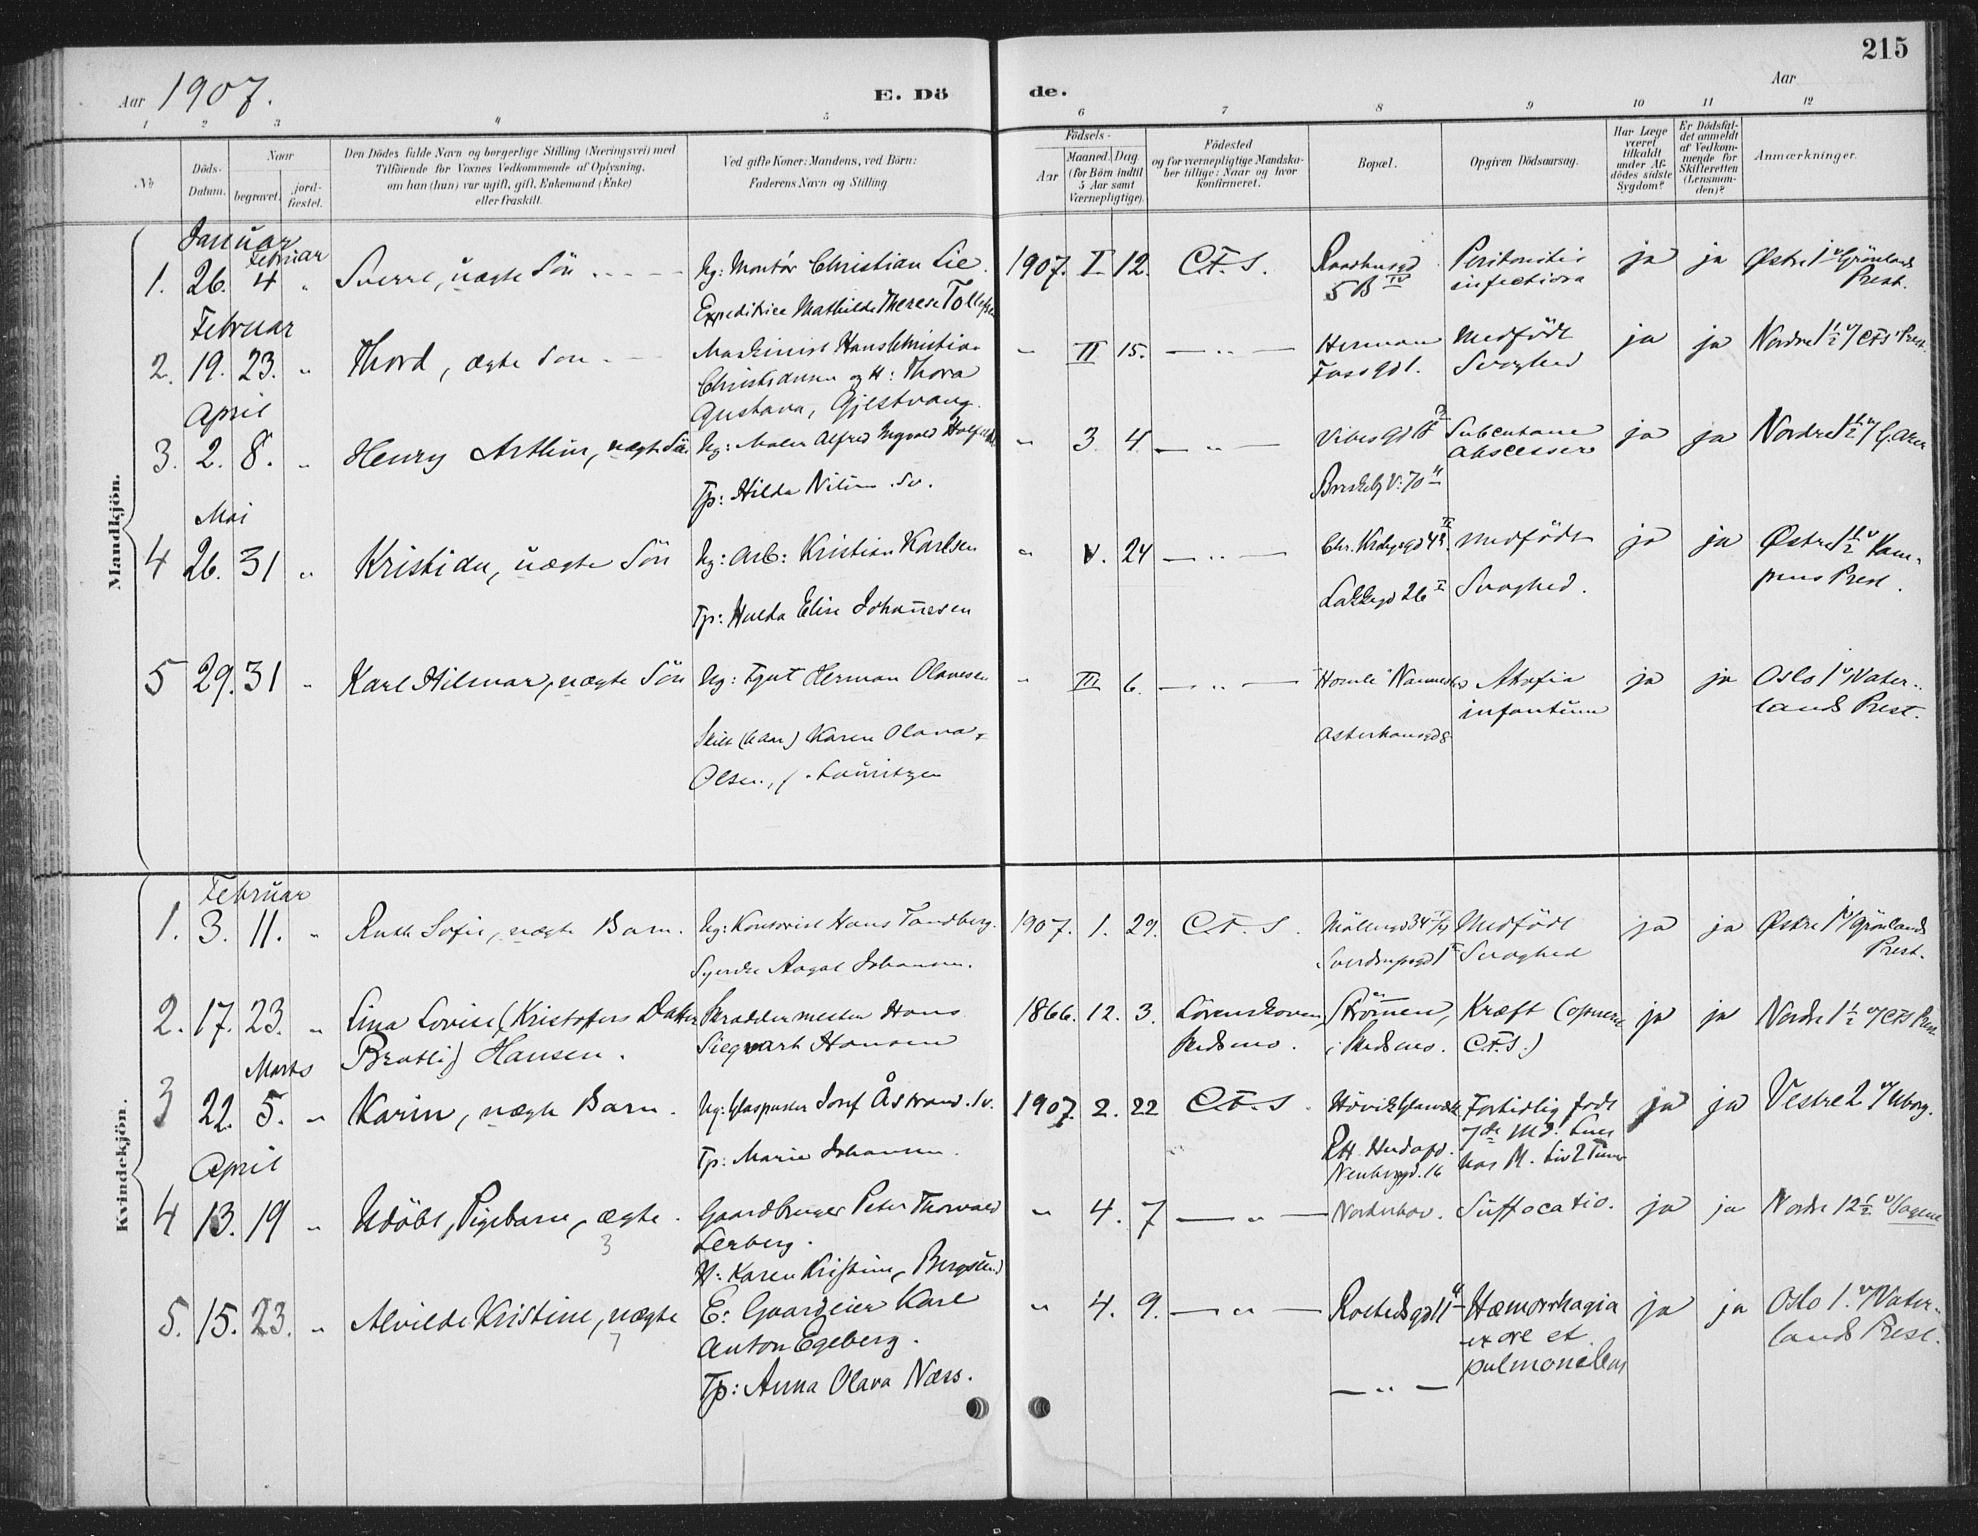 215
Aar 1907.
E. Dö
de.
Aar
1 2 3 4 5
6 7 8 9 10 11 12
No
Döds-Datum.
Naar
begravet.
jord-fæstet.
Den Dödes fulde Navn og borgerlige Stilling (Næringsvei) med
Tilföiende for Voxnes Vedkommende af Oplysning,
om han (hun) var ugift, gift, Enkemand (Enke)
eller fraskilt.
Ved gifte Koner: Mandens, ved Börn:
Faderens Navn og Stilling.
Födsels-
Aar
Maaned. Dag.
(for Börn indtil
5 Aar samt
Værnepligtige).
Födested
og for værnepligtige Mandska-
ber tillige: Naar og hvor
konfirmeret.
Bopæl.
Opgiven Dödsaarsag.
Har Læge
været
tilkaldt
under Af-
dödes sidste
Sygdom?
Er Dödsfal-
det anmeldt
af Vedkom-
mende for
Skifteretten
(Lensman-
den)?
Anmærkninger.
Mandkjön.
Januar
Februar
1. 26. 4 " Sverre, uægte Sön
Ug: Montör Christian Lie.
Expeditrice Mathilde Therese Tollefsen
1907. I. 12. C.F.S.
5 B IV
Peritonitis
infectiosa
ja ja Østre 1 v/ Grönlands
Prest.
Februar
2. 19. 23. " Thord, ægte Sön
Maskinist Hans Christian
Christiansen og H: Thora
Gustava, Gjestvang.
" II 15. — " —
Herman
Fossgd 1.
Medfödt
Svaghed
ja ja Nordre 1 1/2 v/ CFS Prest.
April
3. 2. 8. " Henry Arthur, uægte Sön
Ug: Maler Alfred Ingvald
Tp: Hilda
" 3. 4. — " —
Vibesgd
Briskeby V: 70 II
Subcutane
abscesser
ja ja Nordre 1 1/2 v/
Mai
4 26. 31 " Kristian, uægte Sön
Ug: Arb: Kristian Karlsen
Tp: Hulda Elise Johannesen
" V. 24 — " —
Lakkegd 26 I
Medfödt
Svaghed.
ja ja Østre 1 1/2 v/ Kam-
pens Prest.
5 29. 31 " Karl Hilmar, uægte Sön
Ug: Herman Olavesen
Skilt Karen Olava
Olsen, f. Lauritzen
" III 6. — " —
Atrofia
infantum
ja ja Oslo 1 v/ Vater-
lands Prest.
Kvindekjön.
Februar
1. 3. 11. " Ruth Sofie, uægte Barn.
Ug: Kontorist Hans Tandberg.
Syerske Aagot Johansen.
1907. 1. 29. C.F.S.
Medfödt
Svaghed
ja ja Østre 1 v/ Grönlands
Prest.
2. 17. 23. " Lina Lovise (Kristofers Datter
Bratli) Hansen.
Skræddermester Hans
Siegvart Hansen
1866. 12. 3. Lörenskoven,
Skedsmo.
Strömmen,
i Skedsmo.
Kræft (opereret
C.F.S.)
ja ja Nordre 1 1/2 v/ CFS Prest.
Marts
3 22. 5. " Karin, uægte Barn.
Ug: Glaspuster Josef Åstrand.
Tp: Marie Johansen.
1907. 2. 22 C.F.S.
Neubergd. 16
Fortidlig födt
7de Md.
ja ja Vestre 2 v/
April
4 13. 19 " Udöbt, Pigebarn, ægte.
3
Gaardbruger Peter Thorvald
Lerberg.
H: Karen Kristine, Bergsund
" 4. 7 — " —
Norderhov.
Suffocatio.
ja ja Nordre 12 1/2 v/ Sagene
5. 15. 23. " Alvilde Kristine, uægte
7
E: Gaardeier Karl
Anton Egeberg.
Tp: Anna Olava Næss.
" 4. 9. — " —
— " —
Hæmorrhagia
ex ore et
pulmonibus
ja ja Oslo 1. v/ Vater-
lands Prest.